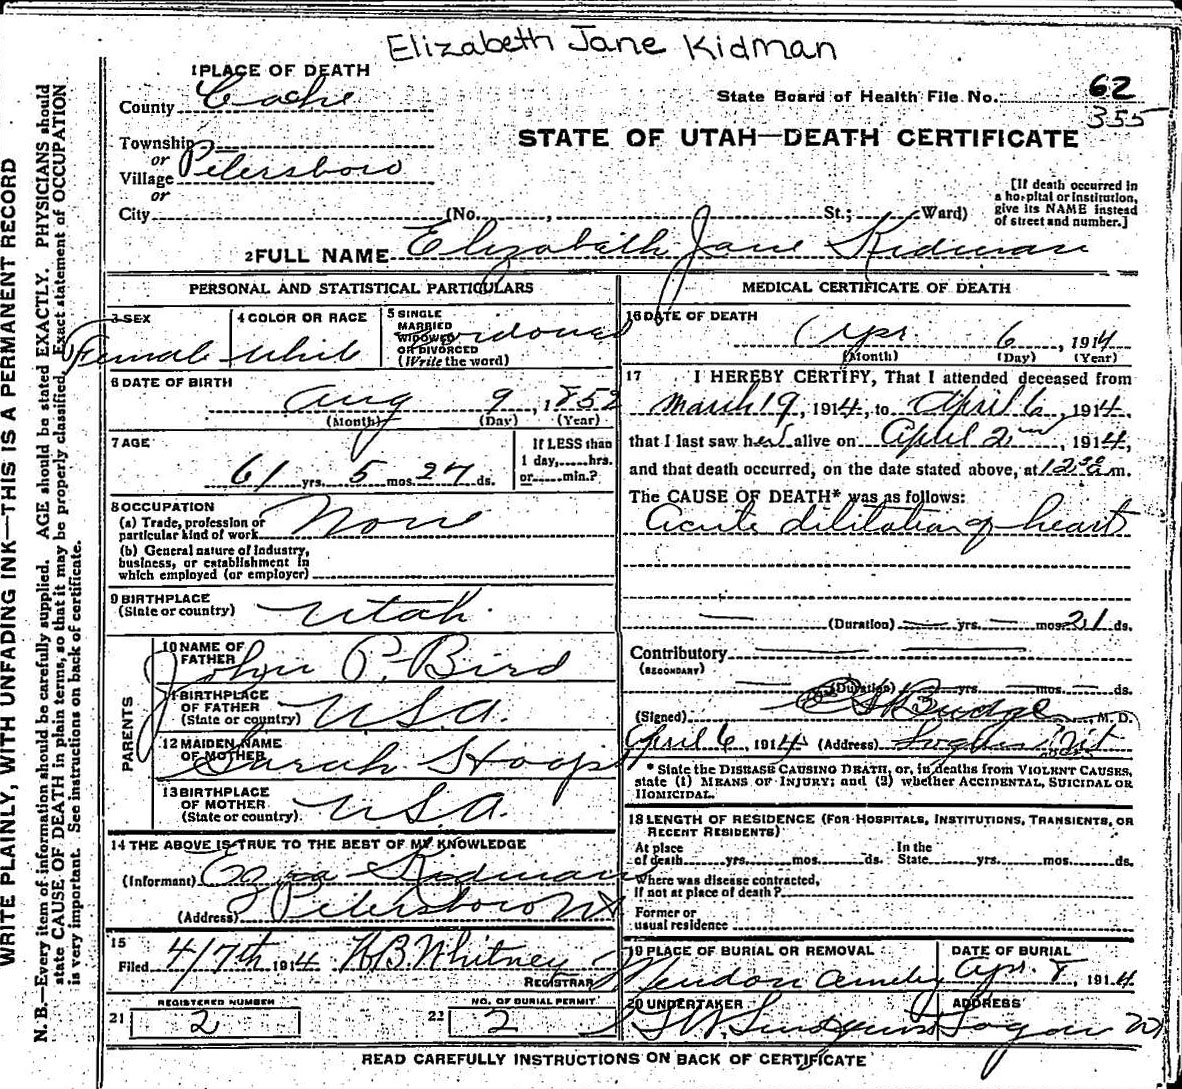 Elizabeth Jane Kidman
1 PLACE OF DEATH
County Cache
State Board of Health File No. 62
355
STATE OF UTAH—DEATH CERTIFICATE
Township
or
Village Petersboro
or
City (No. , St.; Ward)
[If death occurred in
a hospital or institution,
give its NAME instead
of street and number.]
2 FULL NAME Elizabeth Jane Kidman
PERSONAL AND STATISTICAL PARTICULARS
3 SEX
Female
4 COLOR OR RACE
White
5 SINGLE
MARRIED
WIDOWED
OR DIVORCED
(Write the word)
Widowed
6 DATE OF BIRTH
Aug 9, 1852
(Month) (Day) (Year)
7 AGE
61 yrs. 5 mos. 27 ds.
If LESS than
1 day, hrs.
or min.?
8 OCCUPATION
(a) Trade, profession or
particular kind of work None
(b) General nature of industry,
business, or establishment in
which employed (or employer)
9 BIRTHPLACE
(State or country) Utah
PARENTS
10 NAME OF
FATHER John P. Bird
11 BIRTHPLACE
OF FATHER
(State or country) U.S.A.
12 MAIDEN NAME
OF MOTHER Sarah Hoops
13 BIRTHPLACE
OF MOTHER
(State or country) U.S.A.
14 THE ABOVE IS TRUE TO THE BEST OF MY KNOWLEDGE
(Informant) Ezra Kidman
(Address) Petersboro Ut
15
Filed 4/7th, 1914 H.B. Whitney
REGISTRAR
REGISTERED NUMBER
21 2
NO. OF BURIAL PERMIT
22 2
MEDICAL CERTIFICATE OF DEATH
16 DATE OF DEATH
Apr. 6, 1914
(Month) (Day) (Year)
17 I HEREBY CERTIFY, That I attended deceased from
March 19, 1914, to April 6, 1914,
that I last saw her alive on April 2nd, 1914,
and that death occurred, on the date stated above, at 12 a m.
The CAUSE OF DEATH* was as follows:
Acute dilitation of heart
(Duration) yrs. mos. 21 ds.
Contributory
(SECONDARY)
(Duration) yrs. mos. ds.
(Signed) Budge, M. D.
April 6, 1914 (Address)
* State the DISEASE CAUSING DEATH, or, in deaths from VIOLENT CAUSES,
state (1) MEANS OF INJURY; and (2) whether ACCIDENTAL, SUICIDAL OR
HOMICIDAL.
18 LENGTH OF RESIDENCE (FOR HOSPITALS, INSTITUTIONS, TRANSIENTS, OR
RECENT RESIDENTS)
At place
of death yrs. mos. ds.
In the
State yrs. mos. ds.
Where was disease contracted,
if not at place of death?
Former or
usual residence
19 PLACE OF BURIAL OR REMOVAL
Mendon
DATE OF BURIAL
Apr. 8, 1914
20 UNDERTAKER
ADDRESS
Logan
READ CAREFULLY INSTRUCTIONS ON BACK OF CERTIFICATE
WRITE PLAINLY, WITH UNFADING INK—THIS IS A PERMANENT RECORD
N. B.—Every item of information should be carefully supplied. AGE should be stated EXACTLY. PHYSICIANS should
state CAUSE OF DEATH in plain terms, so that it may be properly classified. Exact statement of OCCUPATION
is very important. See instructions on back of certificate.